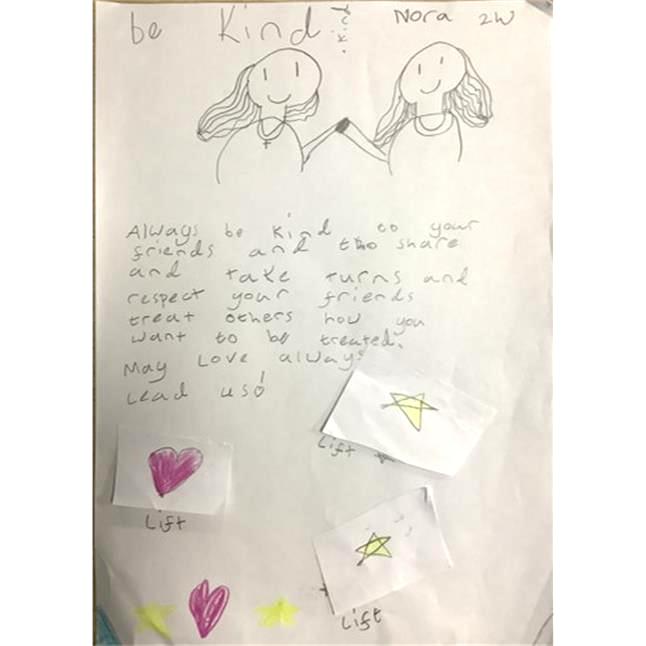 be Kind!
Nora 2W
Always be kind to your
friends and tho share
and take turns and
respect your friends
treat others how you
want to be treated.
May Love always
Lead us!
Lift
Lift
Lift